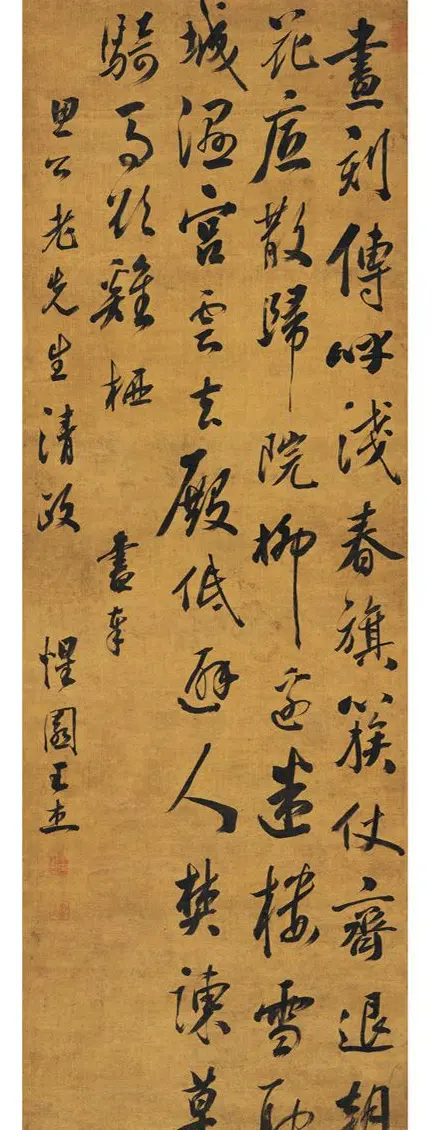 晝刻傳呼淺春旗簇仗齊退朝
花底散歸院柳邊迷樓雪
城濕宮雲去殿低避人焚諫草
騎馬欲雞栖 書奉
思公老先生清政 惺園王杰